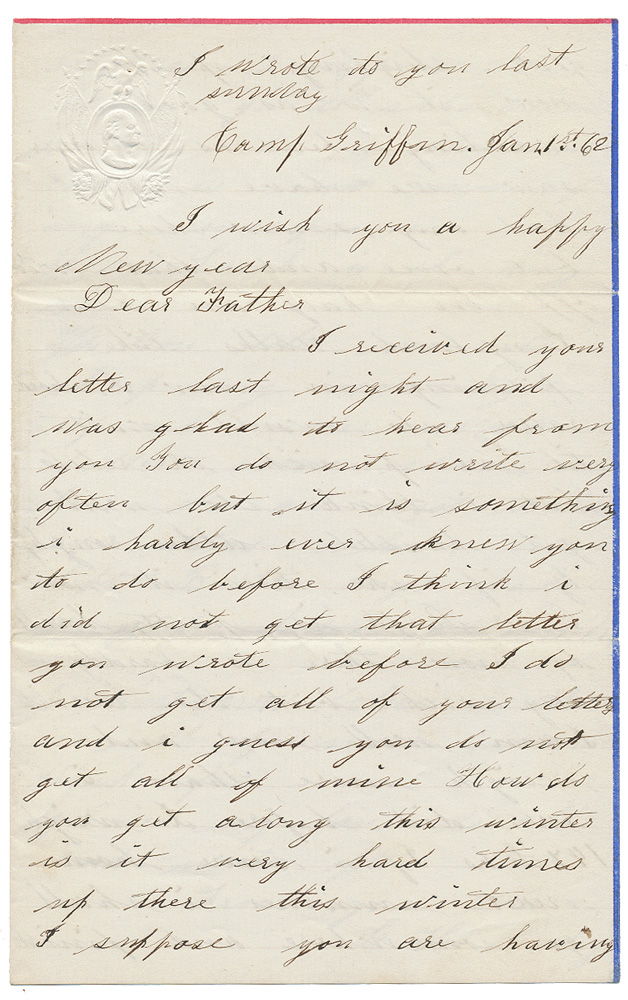 I wrote to you last
sunday
Camp Griffin. Jan. 1st. 62
I wish you a happy
New year
Dear Father
I received your
letter last night and
was glad to hear from
you You do not write very
often but it is something
i hardly ever knew you
to do before I think i
did not get that letter
you wrote before I do
not get all of your letters
and i guess you do not
get all of mine How do
you get along this winter
is it very hard times
up there this winter
I suppose you are having